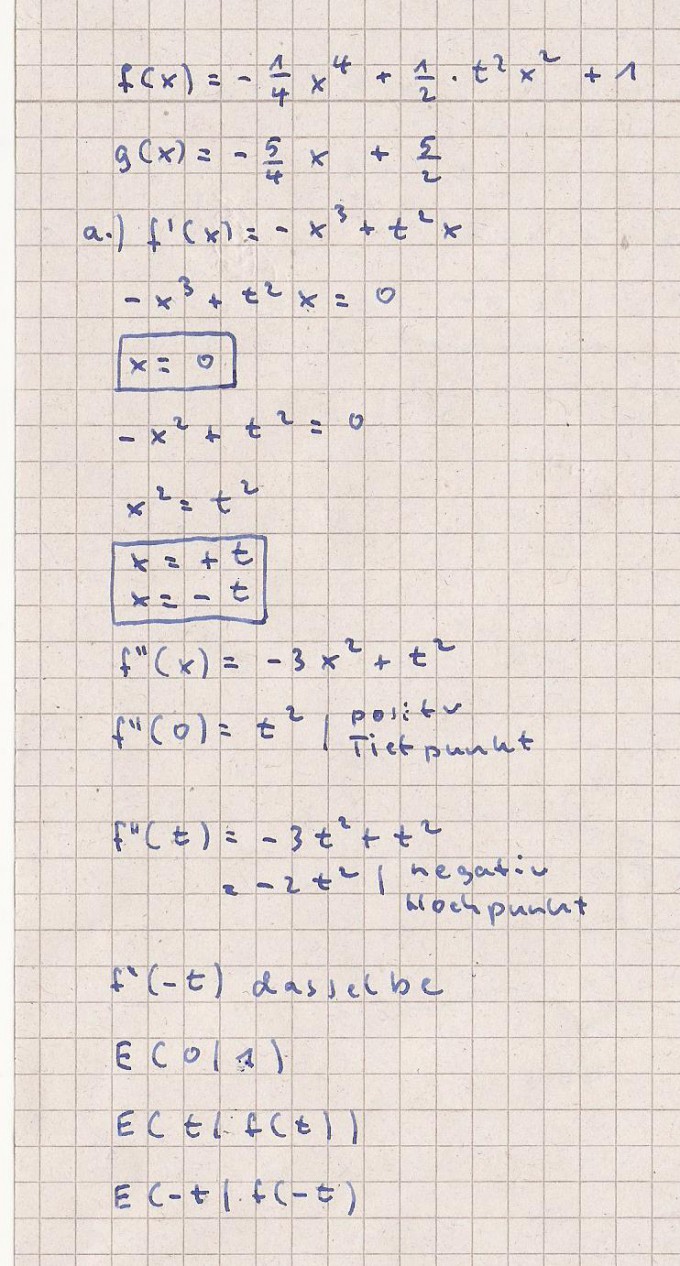 f(x) = - 1/4 x⁴ + 1/2 · t² x² + 1
g(x) = - 5/4 x + 5/2
a.) f'(x) = - x³ + t² x
- x³ + t² x = 0
x = 0
- x² + t² = 0
x² = t²
x = + t
x = - t
f"(x) = -3 x² + t²
f"(0) = t² | positiv
Tiefpunkt
f"(t) = - 3 t² + t²
= - 2 t² | negativ
Hochpunkt
f'(-t) dasselbe
E ( 0 | 1 )
E ( t | f(t) )
E (-t | f(-t)